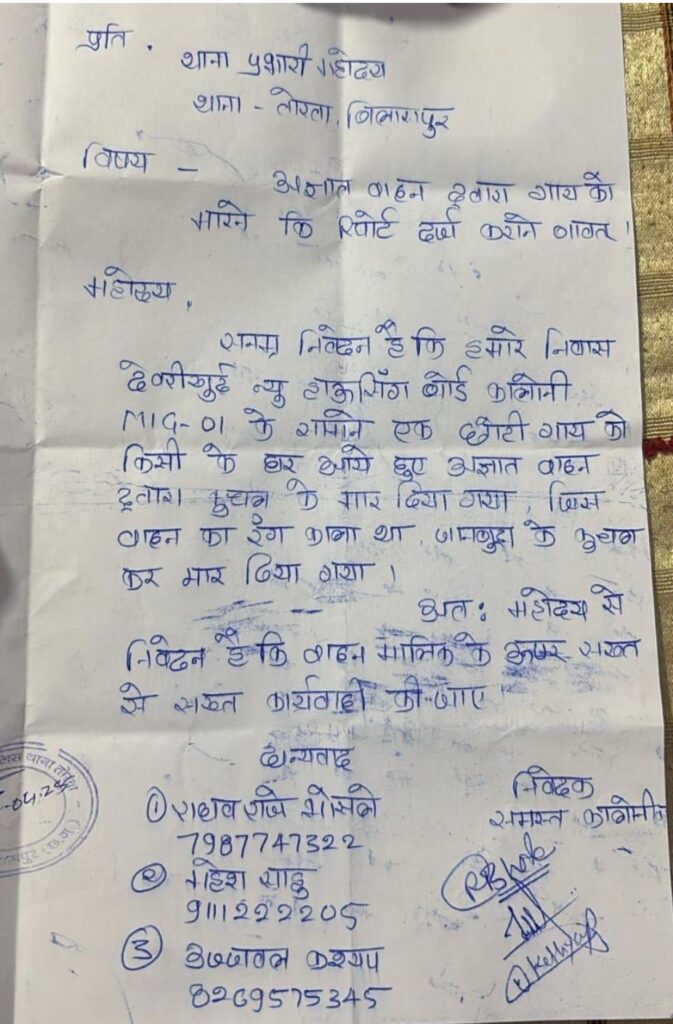 प्रति .
थाना प्रभारी महोदय
थाना - तोरवा, बिलासपुर
विषय - अज्ञात वाहन द्वारा गाय को
मारने कि रिपोर्ट दर्ज कराने बाबत।
महोदय,
सनम्र निवेदन है कि हमारे निवास
देवरीखुर्द न्यु हाऊसिंग बोर्ड कालोनी
MIG-01 के सामने एक छोटी गाय को
किसी के घर आये हुए अज्ञात वाहन
द्वारा कुचल के मार दिया गया, जिस
वाहन का रंग काला था, जानबुझ के कुचल
कर मार दिया गया।
अतः महोदय से
निवेदन है कि वाहन मालिक के ऊपर सख्त
से सख्त कार्यवाही की जाए
धन्यवाद
निवेदक
समस्त
① राघव राजे भोसले
7987747322
② महेश साहु
9111222205
③ उज्जवल कश्यप
8269575345
थाना
04.25